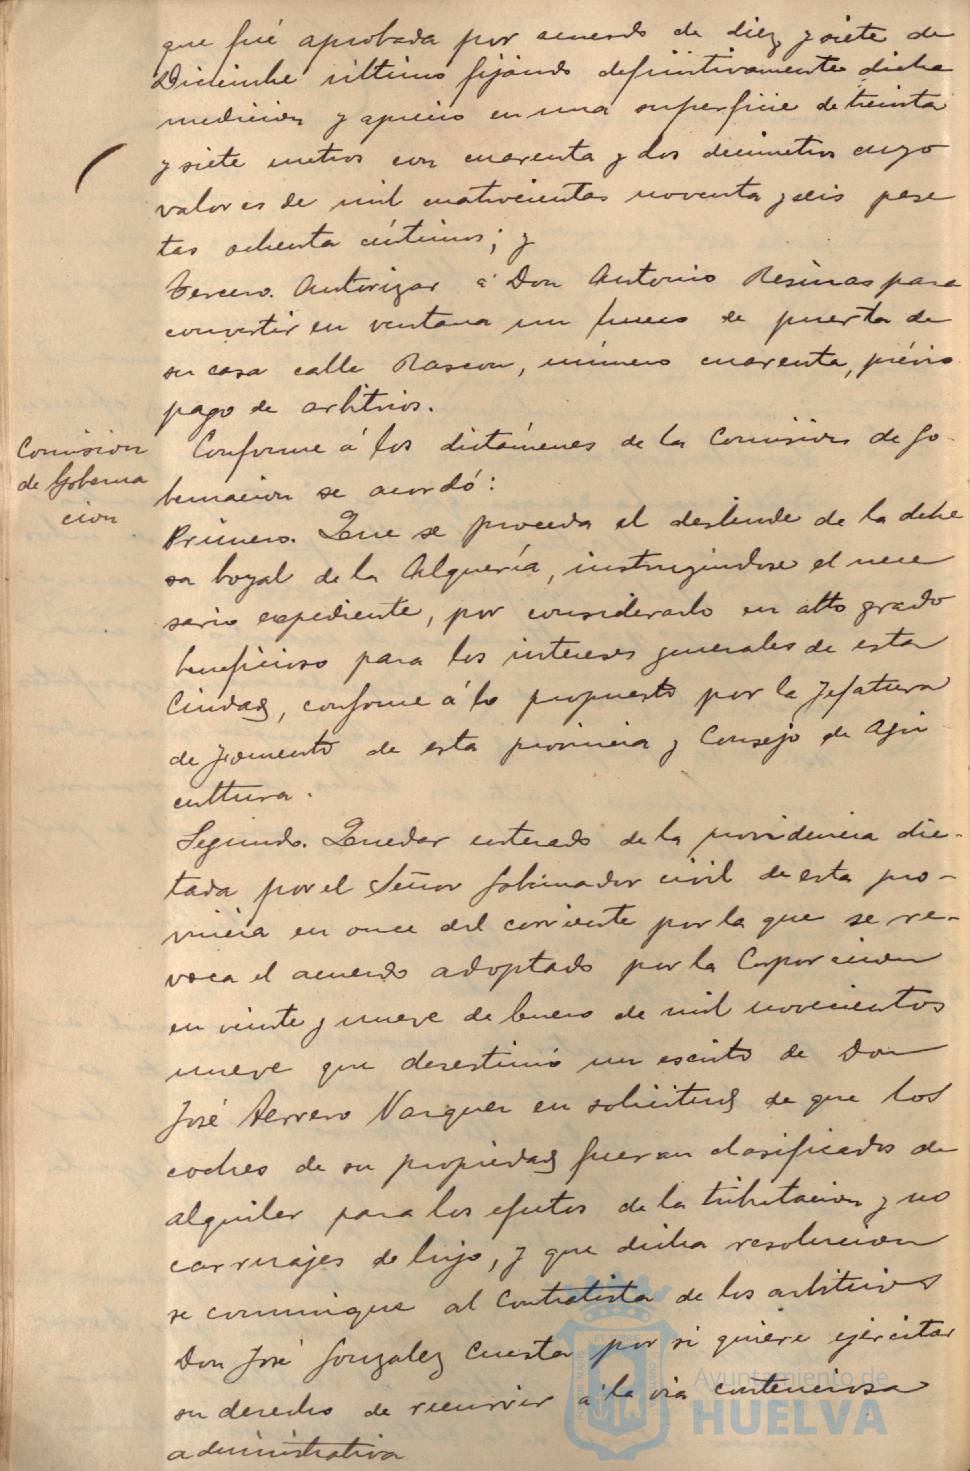 que fué aprobada por acuerdo de diez y siete de
Diciembre último fijando definitivamente dicha
medicion y aprecio en una superficie de treinta
y siete metros con cuarenta y dos decimetros cuyo
valor es de mil cuatrocientas noventa y seis pese
tas ochenta céntimos; y
Tercero. Autorizar á Don Antonio Resinas para
convertir en ventana un hueco de puerta de
su casa calle Rascon, número cuarenta, prévio
pago de arbitrios.
Comision
de Goberna
cion
Conforme á los dictámenes de la Comision de Go-
bernacion se acordó:
Primero. Que se proceda al deslinde de la dehe
sa boyal de la Alquería, instruyéndose el nece
sario expediente, por considerarlo en alto grado
beneficioso para los intereses generales de esta
Ciudad, conforme á lo propuesto por la Jefatura
de Fomento de esta provincia y Consejo de Agri
cultura.
Segundo. Quedar enterado de la providencia dic-
tada por el Señor Gobernador civil de esta pro-
vincia en once del corriente por la que se re-
voca el acuerdo adoptado por la Corporacion
en veinte y nueve de Enero de mil novecientos
nueve que desestimó un escrito de Don
José Herrero Vazquez en solicitud de que los
coches de su propiedad fueran clasificados de
alquiler para los efectos de la tributacion y no
carruajes de lujo, y que dicha resolucion
se comunique al Contratista de los arbitrios
Don José Gonzalez Cuesta por si quiere ejercitar
su derecho de recurrir á la via contenciosa
administrativa
Ayuntamiento de
HUELVA